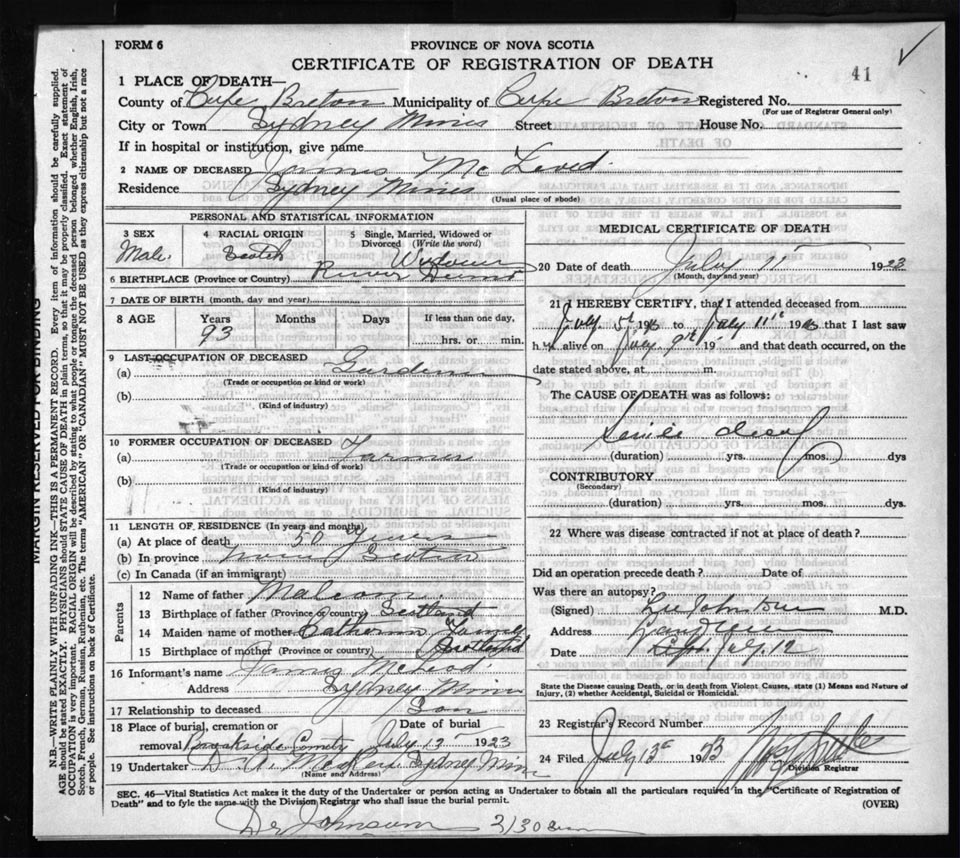 FORM 6
PROVINCE OF NOVA SCOTIA
CERTIFICATE OF REGISTRATION OF DEATH
41
1 PLACE OF DEATH—
County of Cape Breton Municipality of Cape Breton Registered No.
(For use of Registrar General only)
City or Town Sydney Mines Street House No.
If in hospital or institution, give name
2 NAME OF DECEASED James McLeod
Residence Sydney Mines
(Usual place of abode)
PERSONAL AND STATISTICAL INFORMATION
3 SEX Male.
4 RACIAL ORIGIN Scotch
5 Single, Married, Widowed or Divorced (Write the word) Widower
6 BIRTHPLACE (Province or Country) River
7 DATE OF BIRTH (month, day and year)
8 AGE Years Months Days If less than one day,
93 hrs. or min.
9 LAST OCCUPATION OF DECEASED
(a) Gardener
(Trade or occupation or kind or work)
(b)
(Kind of industry)
10 FORMER OCCUPATION OF DECEASED
(a) Farmer
(Trade or occupation or kind of work)
(b)
(Kind of industry)
11 LENGTH OF RESIDENCE (In years and months)
(a) At place of death 50 Years
(b) In province Nova Scotia
(c) In Canada (if an immigrant)
Parents
12 Name of father Malcom
13 Birthplace of father (Province or country) Scotland
14 Maiden name of mother Catherine
15 Birthplace of mother (Province or country) Scotland
16 Informant's name James McLeod
Address Sydney Mines
17 Relationship to deceased Son
18 Place of burial, cremation or removal Brookside Date of burial July 13 1923
19 Undertaker Sydney Mines
(Name and Address)
MEDICAL CERTIFICATE OF DEATH
20 Date of death July 11 1923
(Month, day and year)
21 I HEREBY CERTIFY, that I attended deceased from
July 5th 1923 to July 11th 1923 that I last saw
him alive on July 9th 19 and that death occurred, on the
date stated above, at m.
The CAUSE OF DEATH was as follows:
Senile
(duration) yrs. mos. dys
CONTRIBUTORY
(Secondary)
(duration) yrs. mos. dys.
22 Where was disease contracted if not at place of death?
Did an operation precede death? Date of
Was there an autopsy?
(Signed) Johnstone M.D.
Address
Date July 12
State the Disease causing Death, or in death from Violent Causes, state (1) Means and Nature of
Injury, (2) whether Accidental, Suicidal or Homicidal.
23 Registrar's Record Number
24 Filed July 13th 1923
Division Registrar
SEC. 46—Vital Statistics Act makes it the duty of the Undertaker or person acting as Undertaker to obtain all the particulars required in the "Certificate of Registration of
Death" and to fyle the same with the Division Registrar who shall issue the burial permit.
(OVER)
Dr Johnson 2/30
MARGIN RESERVED FOR BINDING
N.B.—WRITE PLAINLY WITH UNFADING INK—THIS IS A PERMANENT RECORD. Every item of information should be carefully supplied.
AGE should be stated EXACTLY. PHYSICIANS should STATE CAUSE OF DEATH in plain terms, so that it may be properly classified. Exact statement of
OCCUPATION is very important. RACIAL ORIGIN will be described by stating to what people or tongue the deceased person belonged whether English, Irish,
Scotch, French, German, Russian, Ruthenian, etc. The terms "AMERICAN" OR "CANADIAN" MUST NOT BE USED as they express citizenship but not a race
or people. See instructions on back of Certificate.